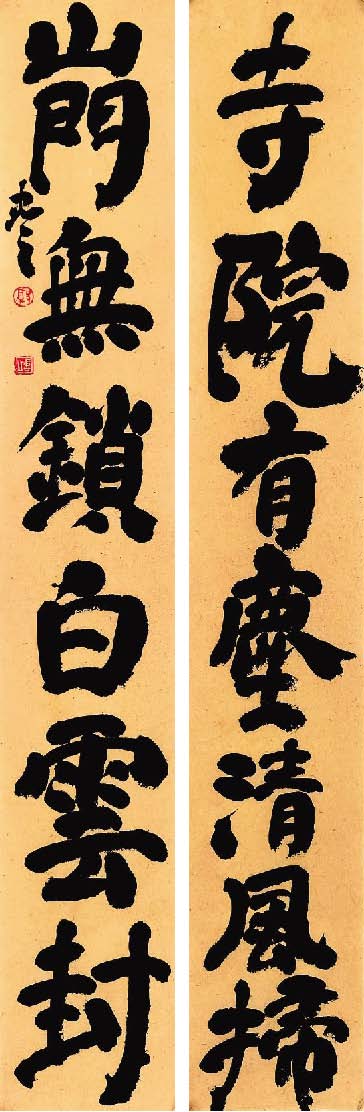 寺院有塵清風掃
山門無鎖白雲封